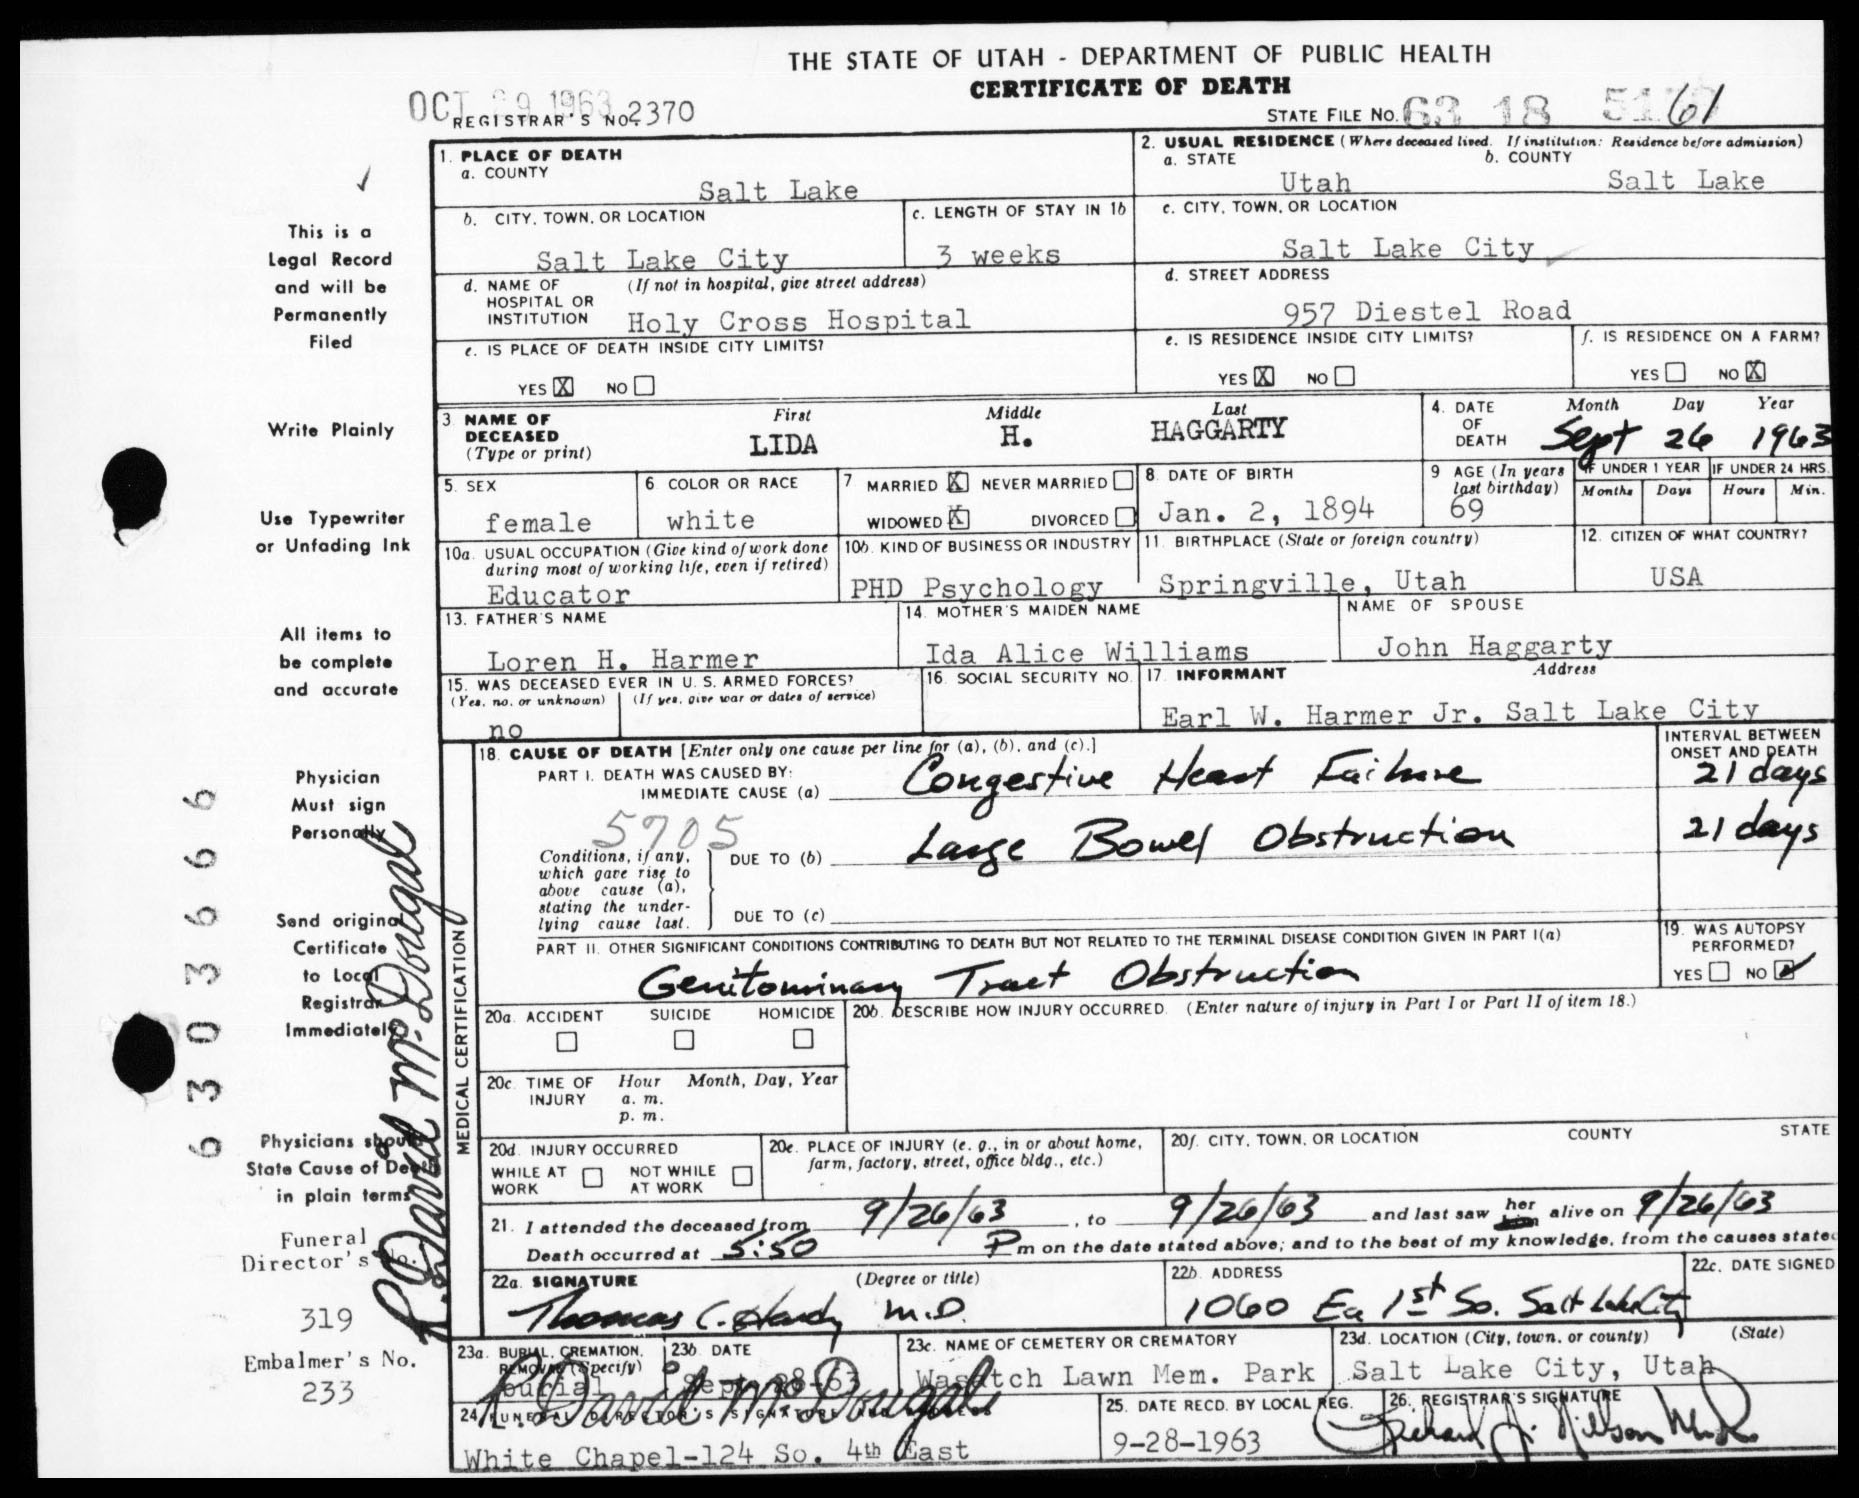 THE STATE OF UTAH - DEPARTMENT OF PUBLIC HEALTH
CERTIFICATE OF DEATH
OCT 1963
REGISTRAR'S NO. 2370
STATE FILE NO. 63 18 61
1. PLACE OF DEATH
a. COUNTY
Salt Lake
2. USUAL RESIDENCE (Where deceased lived. If institution: Residence before admission)
a. STATE b. COUNTY
Utah Salt Lake
b. CITY, TOWN, OR LOCATION
Salt Lake City
c. LENGTH OF STAY IN 1b
3 weeks
c. CITY, TOWN, OR LOCATION
Salt Lake City
d. NAME OF HOSPITAL OR INSTITUTION (If not in hospital, give street address)
Holy Cross Hospital
d. STREET ADDRESS
957 Diestel Road
e. IS PLACE OF DEATH INSIDE CITY LIMITS?
YES X NO
e. IS RESIDENCE INSIDE CITY LIMITS?
YES X NO
f. IS RESIDENCE ON A FARM?
YES NO X
3 NAME OF DECEASED (Type or print)
First Middle Last
LIDA H. HAGGARTY
4. DATE OF DEATH
Month Day Year
Sept 26 1963
5. SEX
female
6 COLOR OR RACE
white
7 MARRIED X NEVER MARRIED
WIDOWED X DIVORCED
8. DATE OF BIRTH
Jan. 2, 1894
9 AGE (In years last birthday)
69
IF UNDER 1 YEAR IF UNDER 24 HRS.
Months Days Hours Min.
10a. USUAL OCCUPATION (Give kind of work done during most of working life, even if retired)
Educator
10b. KIND OF BUSINESS OR INDUSTRY
PHD Psychology
11. BIRTHPLACE (State or foreign country)
Springville, Utah
12. CITIZEN OF WHAT COUNTRY?
USA
13. FATHER'S NAME
Loren H. Harmer
14. MOTHER'S MAIDEN NAME
Ida Alice Williams
NAME OF SPOUSE
John Haggarty
15. WAS DECEASED EVER IN U.S. ARMED FORCES?
(Yes, no, or unknown) (If yes, give war or dates of service)
no
16. SOCIAL SECURITY NO.
17. INFORMANT Address
Earl W. Harmer Jr. Salt Lake City
MEDICAL CERTIFICATION
18. CAUSE OF DEATH [Enter only one cause per line for (a), (b), and (c).]
INTERVAL BETWEEN ONSET AND DEATH
PART I. DEATH WAS CAUSED BY:
IMMEDIATE CAUSE (a) Congestive Heart Failure 21 days
5705
Conditions, if any, which gave rise to above cause (a), stating the underlying cause last.
DUE TO (b) Large Bowel Obstruction 21 days
DUE TO (c)
PART II. OTHER SIGNIFICANT CONDITIONS CONTRIBUTING TO DEATH BUT NOT RELATED TO THE TERMINAL DISEASE CONDITION GIVEN IN PART I(a)
Genitourinary Tract Obstruction
19. WAS AUTOPSY PERFORMED?
YES NO
20a. ACCIDENT SUICIDE HOMICIDE
20b. DESCRIBE HOW INJURY OCCURRED. (Enter nature of injury in Part I or Part II of item 18.)
20c. TIME OF INJURY Hour Month, Day, Year
a. m.
p. m.
20d. INJURY OCCURRED
WHILE AT WORK NOT WHILE AT WORK
20e. PLACE OF INJURY (e. g., in or about home, farm, factory, street, office bldg., etc.)
20f. CITY, TOWN, OR LOCATION COUNTY STATE
21. I attended the deceased from 9/26/63, to 9/26/63 and last saw her him alive on 9/26/63
Death occurred at 5:50 P m on the date stated above; and to the best of my knowledge, from the causes stated
22a. SIGNATURE (Degree or title)
Thomas C. Hardy M.D.
22b. ADDRESS
1060 Ea 1st So. Salt Lake City
22c. DATE SIGNED
23a. BURIAL, CREMATION, REMOVAL (Specify)
burial
23b. DATE
Sept 28-63
23c. NAME OF CEMETERY OR CREMATORY
Wasatch Lawn Mem. Park
23d. LOCATION (City, town, or county) (State)
Salt Lake City, Utah
24. FUNERAL DIRECTOR'S SIGNATURE AND ADDRESS
R. David McDougal
White Chapel-124 So. 4th East
25. DATE RECD. BY LOCAL REG.
9-28-1963
26. REGISTRAR'S SIGNATURE
This is a
Legal Record
and will be
Permanently
Filed
Write Plainly
Use Typewriter
or Unfading Ink
All items to
be complete
and accurate
Physician
Must sign
Personally
Send original
Certificate
to Local
Registrar
Immediately
Physicians should
State Cause of Death
in plain terms
Funeral
Director's No.
319
Embalmer's No.
233
R. David McDougal
6303666